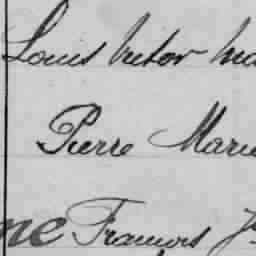 Louis Victor Ma
Pierre Marie
ne François J